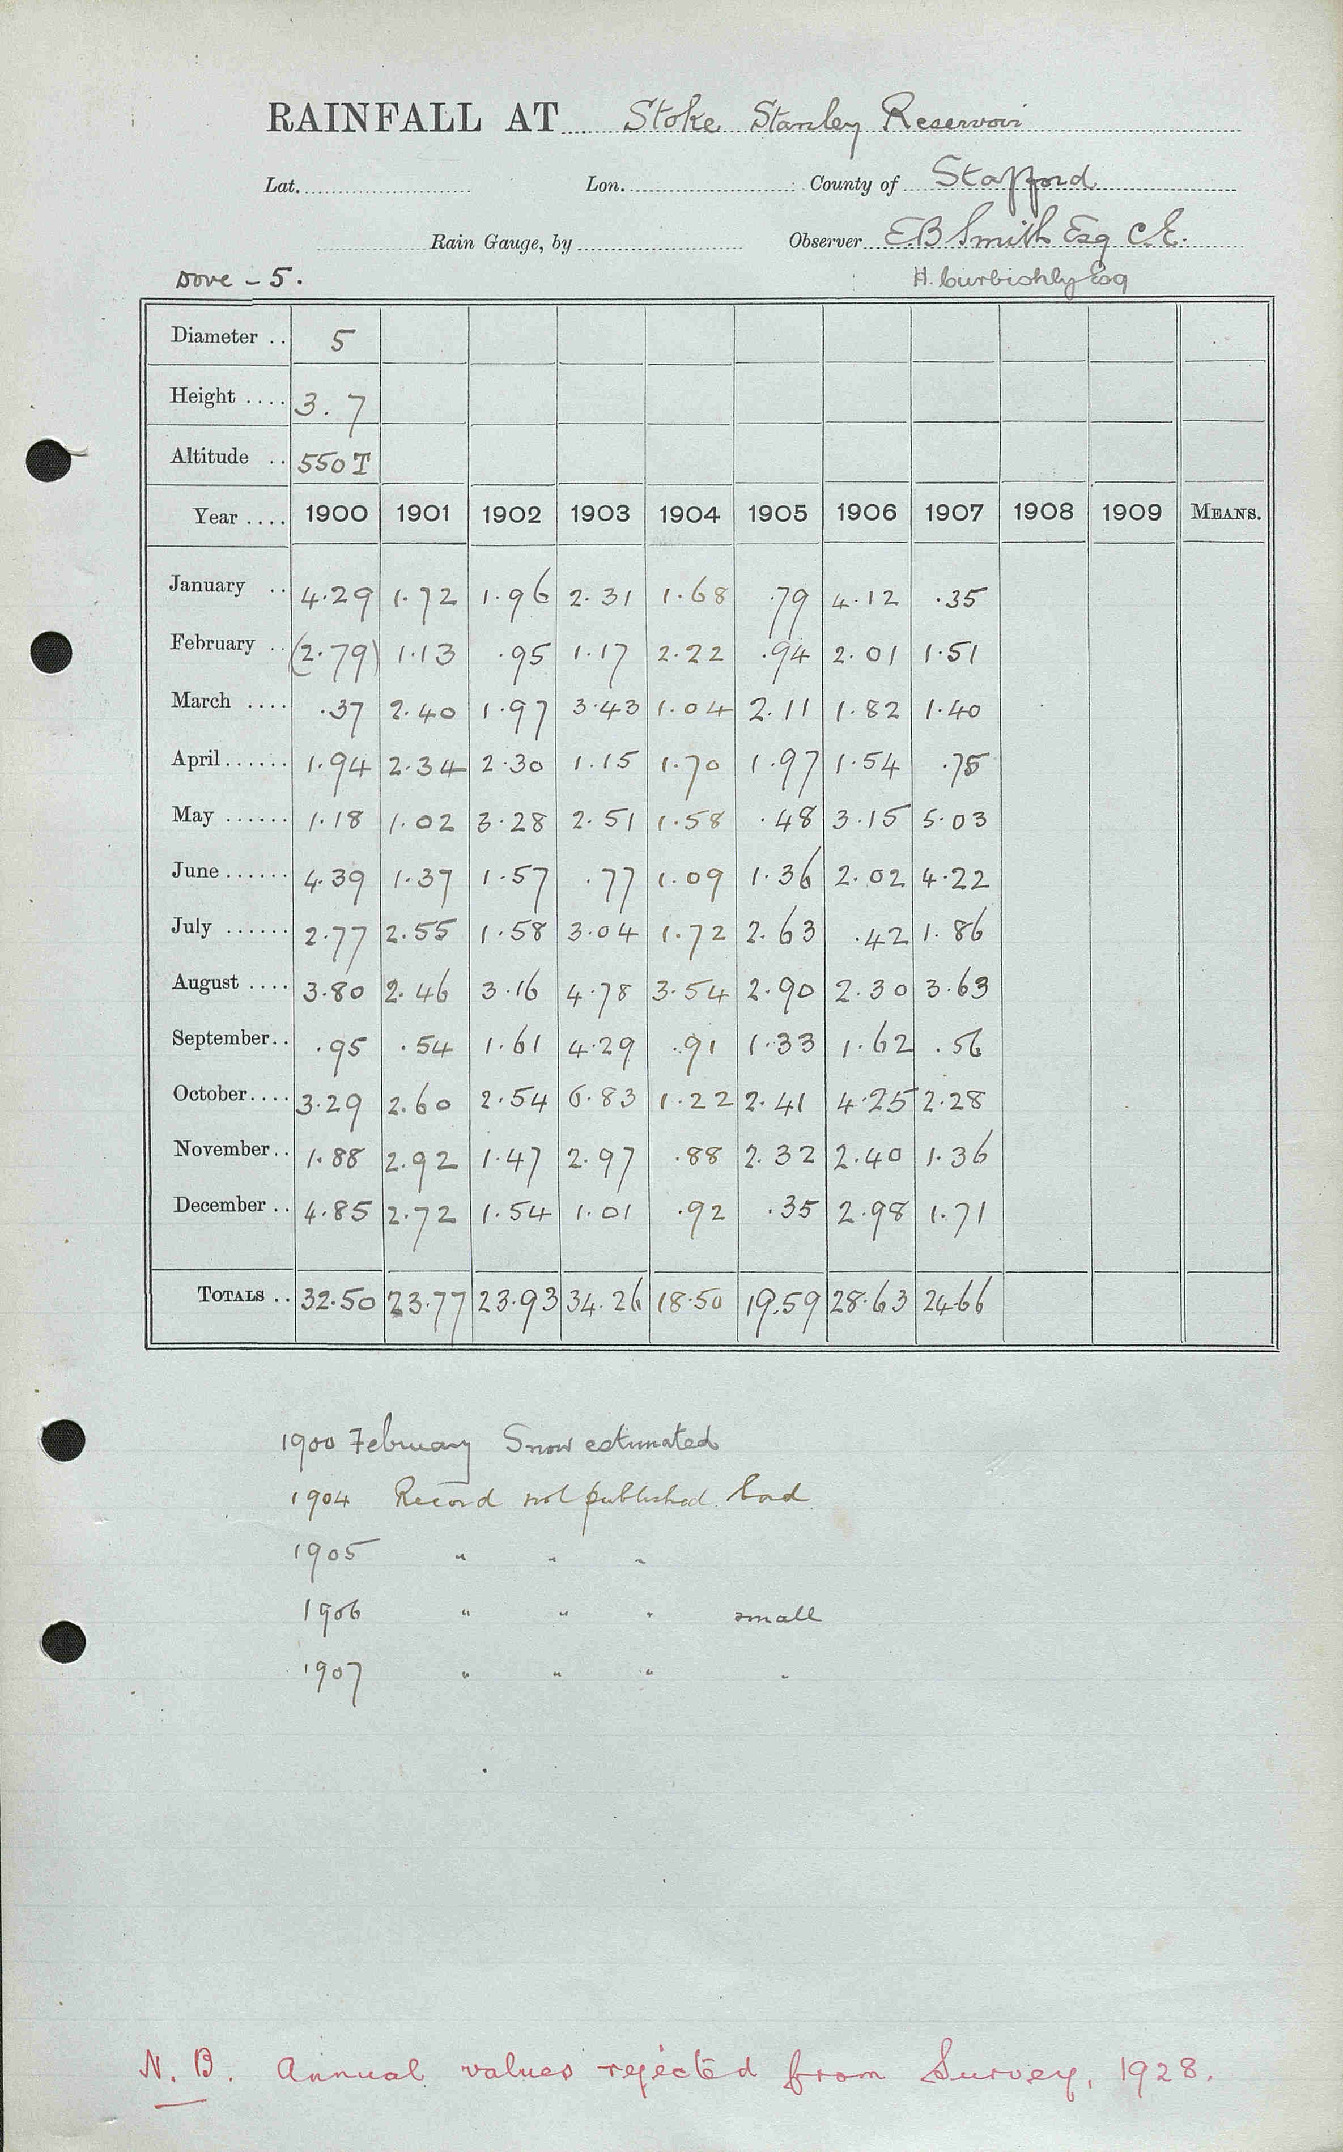 RAINFALL AT Stoke Stanley Reservoir
Lat. Lon. County of Stafford
Rain Gauge, by Observer E B Smith Esq C.E.
Dove - 5. H. Curbishly Esq
Diameter .. 5
Height .... 3.7
Altitude .. 550 T
Year .... 1900 1901 1902 1903 1904 1905 1906 1907 1908 1909 MEANS.
January .. 4.29 1.72 1.96 2.31 1.68 .79 4.12 .35
February .. (2.79) 1.13 .95 1.17 2.22 .94 2.01 1.51
March .... .37 2.40 1.97 3.43 1.04 2.11 1.82 1.40
April ...... 1.94 2.34 2.30 1.15 1.70 1.97 1.54 .75
May ...... 1.18 1.02 3.28 2.51 1.58 .48 3.15 5.03
June ...... 4.39 1.37 1.57 .77 1.09 1.36 2.02 4.22
July ...... 2.77 2.55 1.58 3.04 1.72 2.63 .42 1.86
August .... 3.80 2.46 3.16 4.78 3.54 2.90 2.30 3.63
September.. .95 .54 1.61 4.29 .91 1.33 1.62 .56
October.... 3.29 2.60 2.54 6.83 1.22 2.41 4.25 2.28
November.. 1.88 2.92 1.47 2.97 .88 2.32 2.40 1.36
December .. 4.85 2.72 1.54 1.01 .92 .35 2.98 1.71
TOTALS .. 32.50 23.77 23.93 34.26 18.50 19.59 28.63 24.66
1900 February Snow estimated
1904 Record not published. bad
1905 " " "
1906 " " " small
1907 " " " "
N.B. Annual values rejected from Survey, 1928.